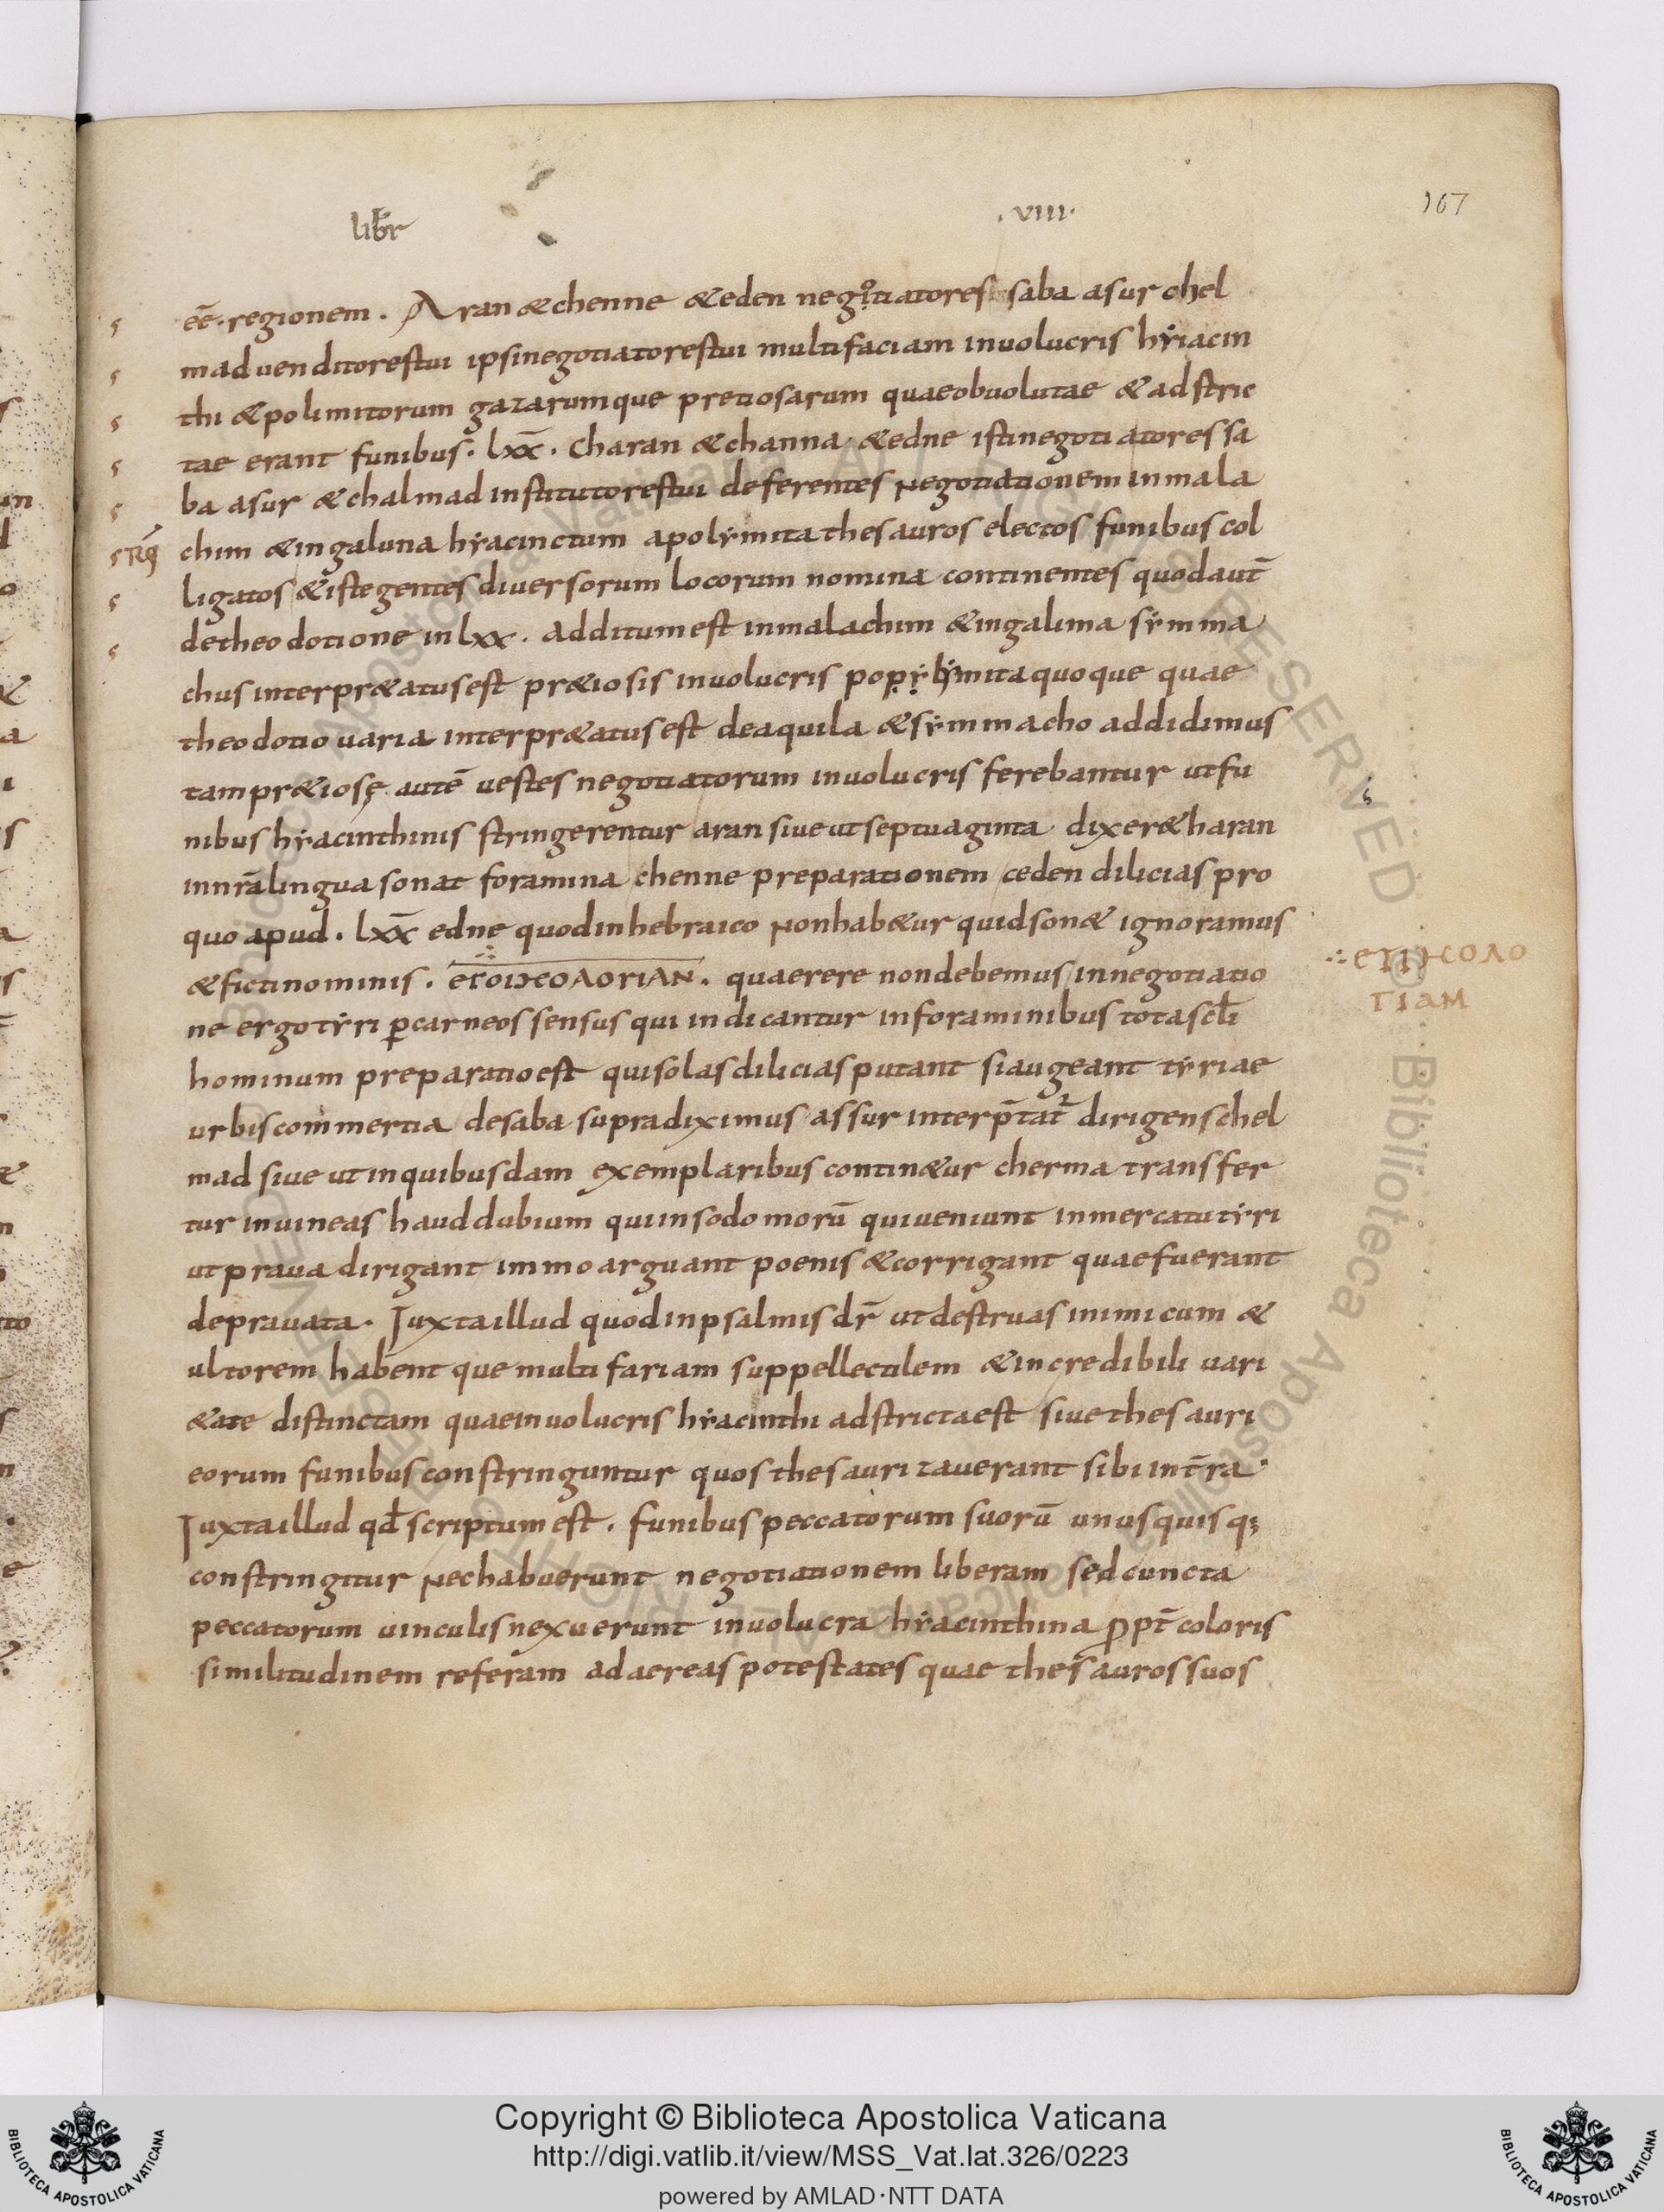 libr̄ .VIII. 167
eē. regionem. Aran & chenne & eden negotiatores saba asur chel
mad uenditores tui ipsi negotiatores tui multifaciam inuolucris hyacin
thi & polimitorum gazarumque pretiosarum quae obuolutae & adstric
tae erant funibus. lxx̄. Charan & channa & edne isti negotiatores sa
ba asur & chalmad institutores tui deferentes negotiationem in mala
chim & in galuna hyacinctum apolymita thesauros electos funibus col
ligatos & iste gentes diuersorum locorum nomina continentes quod aut̄
de theodotione in lxx. additum est in malachim & in galima symma
chus interpr&atus est pr&iosis inuolucris popylymita quoque quae
theodotio uaria interpr&atus est de aquila & symmacho addidimus
tam pr&iosę autē uestes negotiatorum inuolucris ferebantur ut fu
nibus hyacinthinis stringerentur aran siue ut septuaginta dixer& haran
in nr̄a lingua sonat foramina chenne preparationem ceden dilicias pro
quo apud. lxx̄ edne quod in hebraico non hab&ur quid son& ignoramus
& ficti nominis. ετοιηcολοriαN. quaerere non debemus in negotiatio
∴ετιηcολο
ΓΙαΜ
ne ergo tyri p̱ carneos sensus qui indicantur in foraminibus tota scl̄i
hominum preparatio est qui solas dilicias putant si augeant tyriae
urbis commertia de saba supra diximus assur interp̄tat̄ dirigens chel
mad siue ut in quibusdam exemplaribus contin&ur cherma transfer
tur in uineas haud dubium quiin sodomorū qui ueniunt in mercatu tyri
ut praua dirigant immo arguant poenis & corrigant quae fuerant
deprauata. Iuxta illud quod in psalmis dr̄ ut destruas inimicum &
ultorem habent que multifariam suppellectilem & incredibili uari
&ate distinctam quae inuolucris hyacinthi adstricta est siue thesauri
eorum funibus constringuntur quos thesaurizauerant sibi in t̄ra.
Iuxta illud qd̄ scriptum est. funibus peccatorum suorū unusquisq;
constringitur nec habuerunt negotiationem liberam sed cuncta
peccatorum uinculis nexuerunt inuolucra hyacinthina ꝓpt̄ coloris
similitudinem referam ad aereas potestates quae thesauros suos
Copyright © Biblioteca Apostolica Vaticana
http://digi.vatlib.it/view/MSS_Vat.lat.326/0223
powered by AMLAD·NTT DATA
BIBLIOTECA APOSTOLICA VATICANA
BIBLIOTECA APOSTOLICA VATICANA